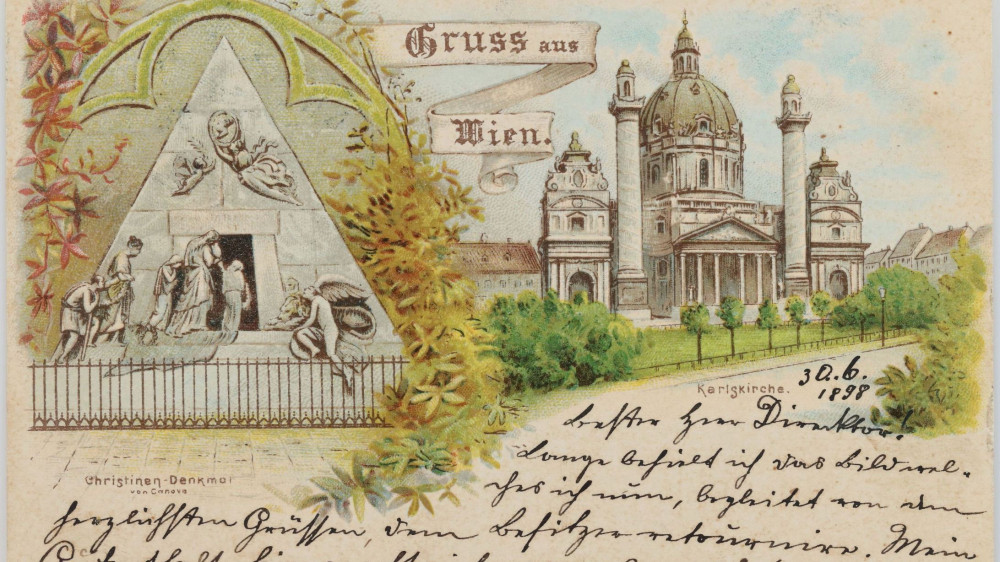 Gruss aus
Wien.
Karlskirche.
30.6.
1898
Christinen-Denkmal
von Canova
bester Herr Direktor!
Lange behielt ich das Bild wel-
ches ich nun, begleitet von den
herzlichsten Grüssen, dem Besitzer retournire. Mein